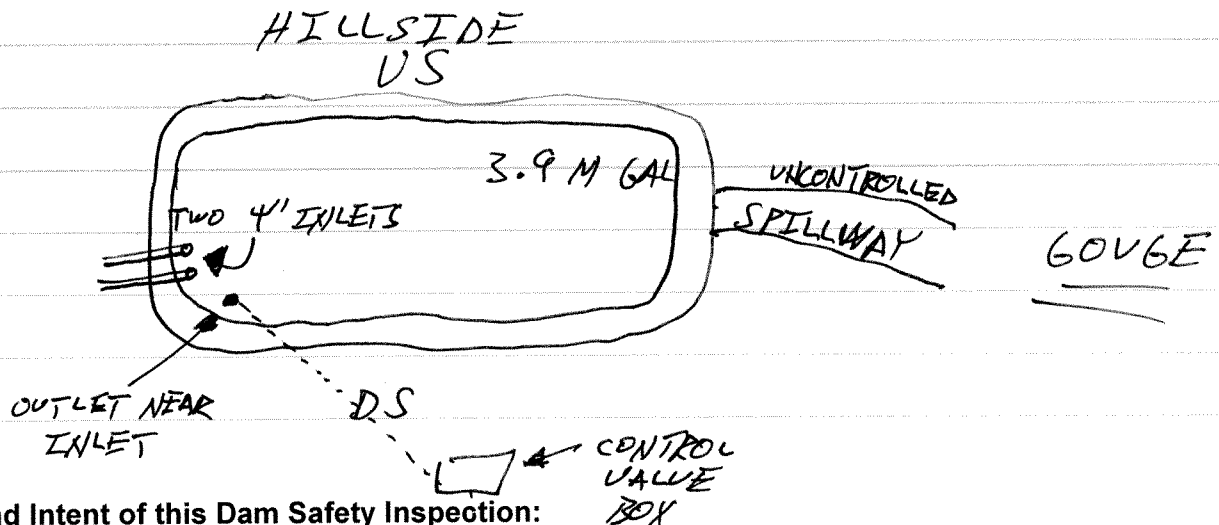 HILLSIDE
US
3.9 M GAL
TWO 4" INLETS
UNCONTROLLED
SPILLWAY
GOUGE
OUTLET NEAR
INLET
DS
CONTROL
VALUE
BOX
nd Intent of this Dam Safety Inspection: